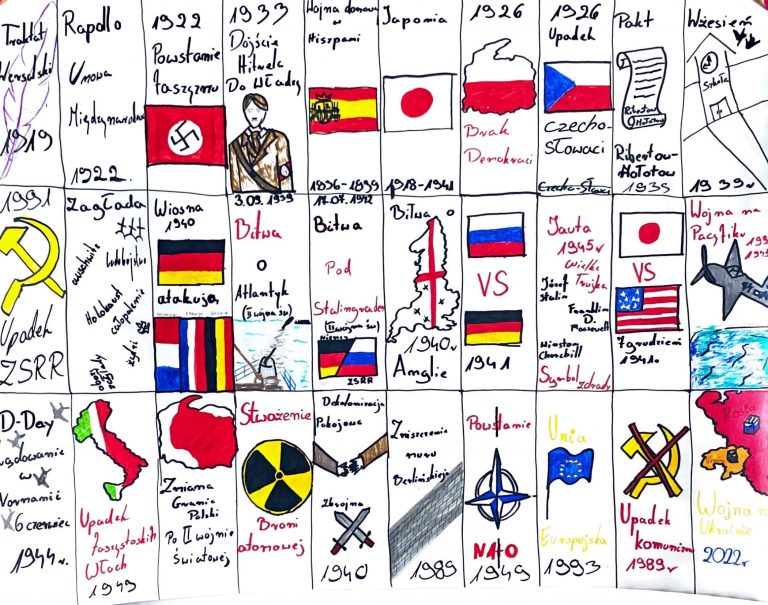 Traktat
Wersalski
1919
Rapallo
Umowa
Międzynarodowa
1922.
1922
Powstanie
faszyzmu
1933
Dojście
Hitlera
Do Władzy
Wojna domowa
w
Hiszpani
1836-1839
Japonia
1918-1941
1926
Brak
Demokracji
1926
Upadek
Czecho-
Słowaci
Czecho-Słowaci
Pakt
Ribertow
Mołotow
Ribertow-
Mołotow
1939
Wrzesień
Szkoła
1939r
1991
Upadek
ZSRR
Zagłada
auschwitz
Holokaust
całopalenie
żydzi
Wiosna
1940
atakują
3.09.1939
Bitwa
o
Atlantyk
(II wojna św)
17.07.1942
Bitwa
Pod
Stalingradem
(II wojna św)
Niemcy
ZSRR
Bitwa o
1940r
Anglie
VS
1941
Jauta
1945r
Wielka
Trujka
Józef
Stalin
Franklin
D.
Roosevelt
Winston
Churchill
Symbol zdrady
VS
7 grudzień
1941r
Wojna na
Pacyfiku
D-Day
Lądowanie
w
Normandi
6 czerwiec
1944r.
Upadek
faszystoskich
Włoch
1943
Zmiana
Granic
Polski
Po II wojnie
światowej
Stworzenie
Broni
atomowej
Dekolonizacja
Pokojowa
Zbrojna
1940
Zniszczenie
muru
Berlińskiego
1989
Powstanie
NATO
1949
Unia
Europejska
1993
Upadek
komunizmu
1989r
Rosja
Wojna na
Ukrainie
2022r